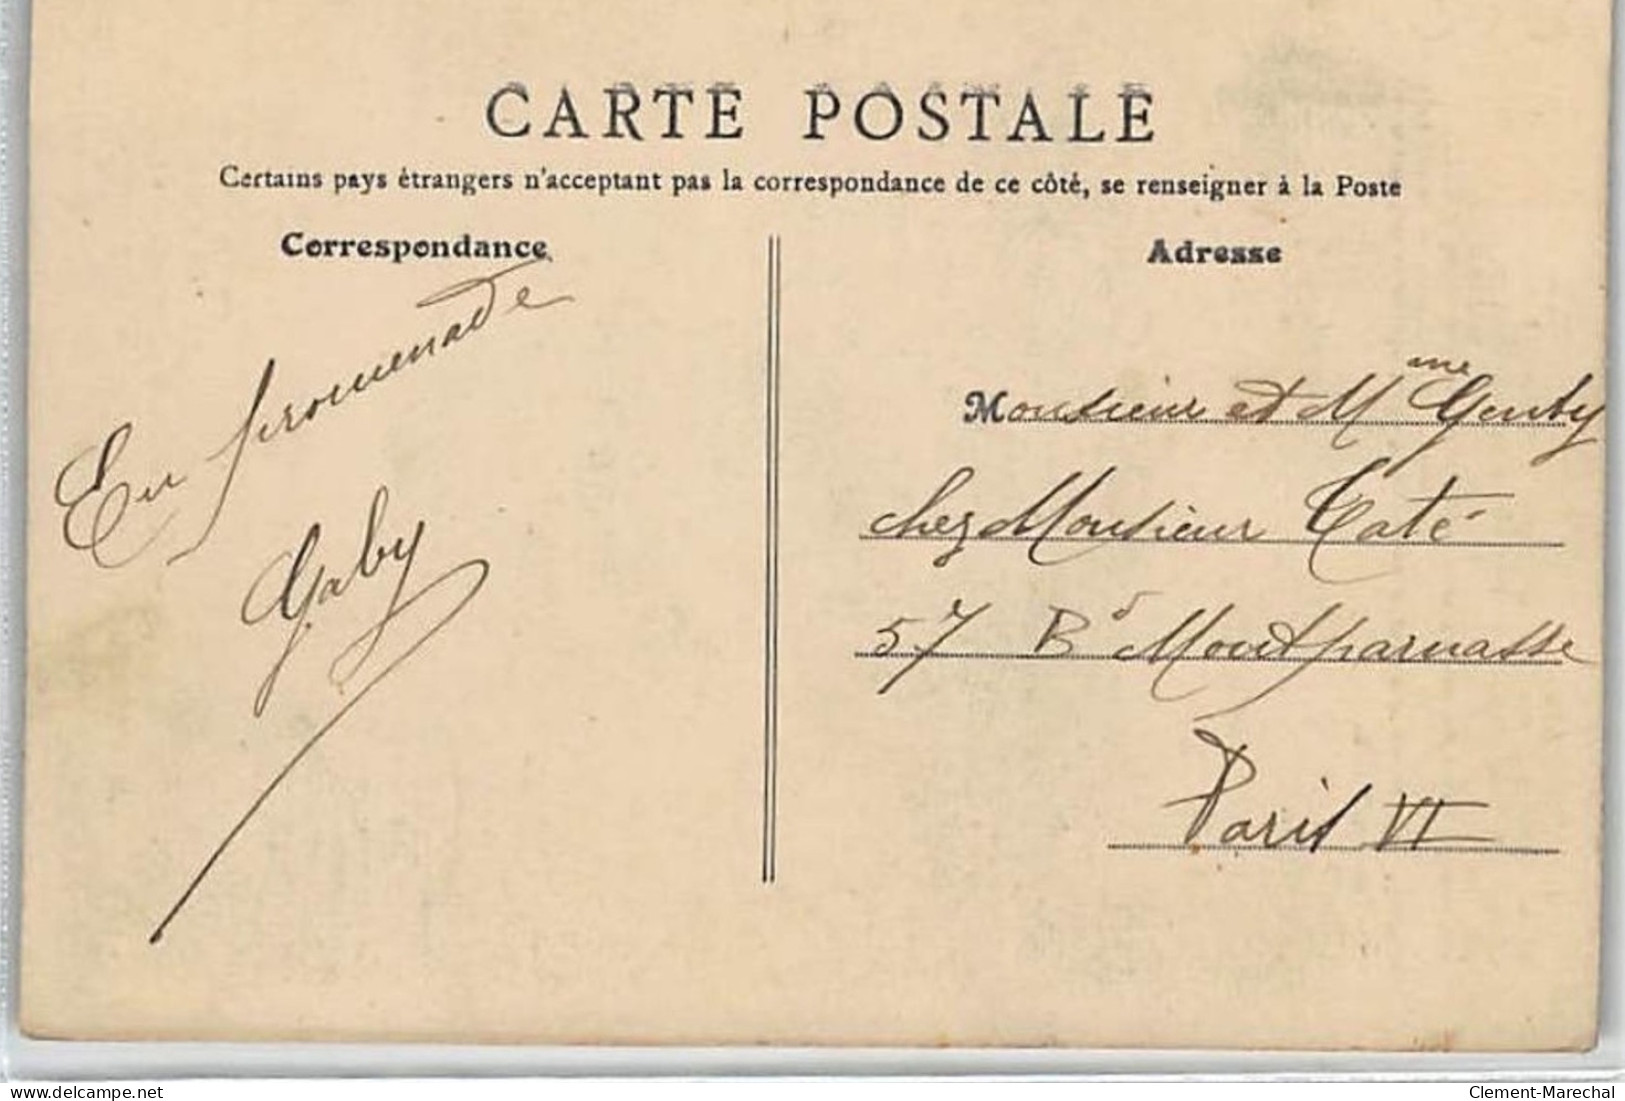 CARTE POSTALE
Certains pays étrangers n'acceptant pas la correspondance de ce côté, se renseigner à la Poste
Correspondance
En promenade
Gaby
Adresse
Monsieur et Mme Genty
chez Monsieur Taté
57 Bd Montparnasse
Paris VI
delcampe.net
Clement-Marechal